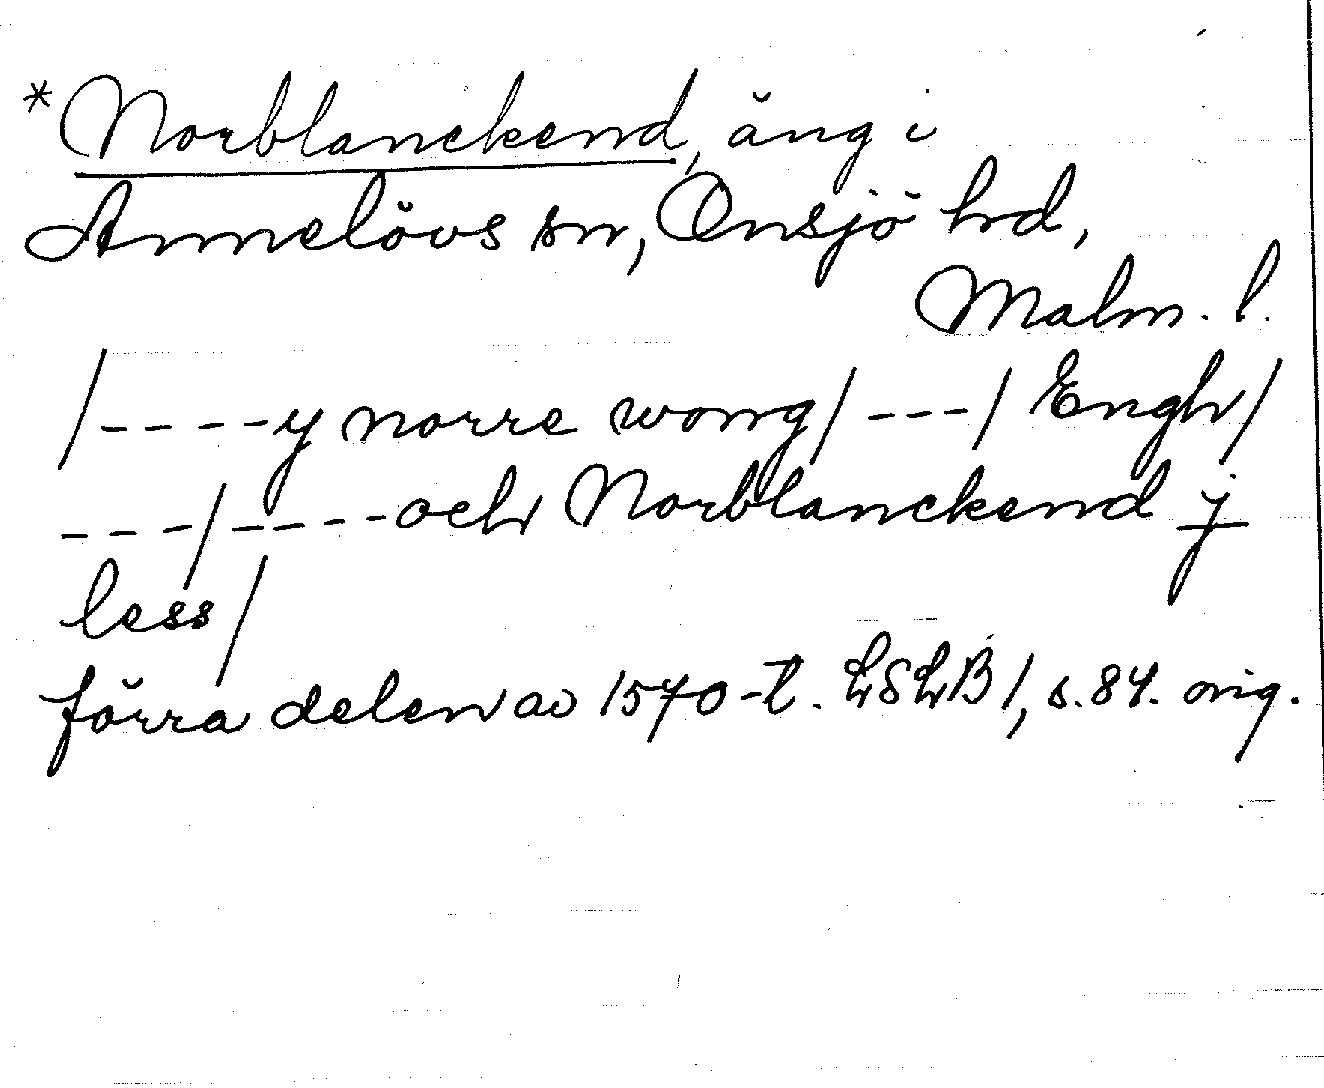 *Norblanckend, äng i
Annelövs sn, Onsjö hd,
Malm. l.
/----y norre wong/---/ Engh/
---/----och Norblanckend j
less/
förra delen av 1570-t. LSLB 1, s. 84. orig.